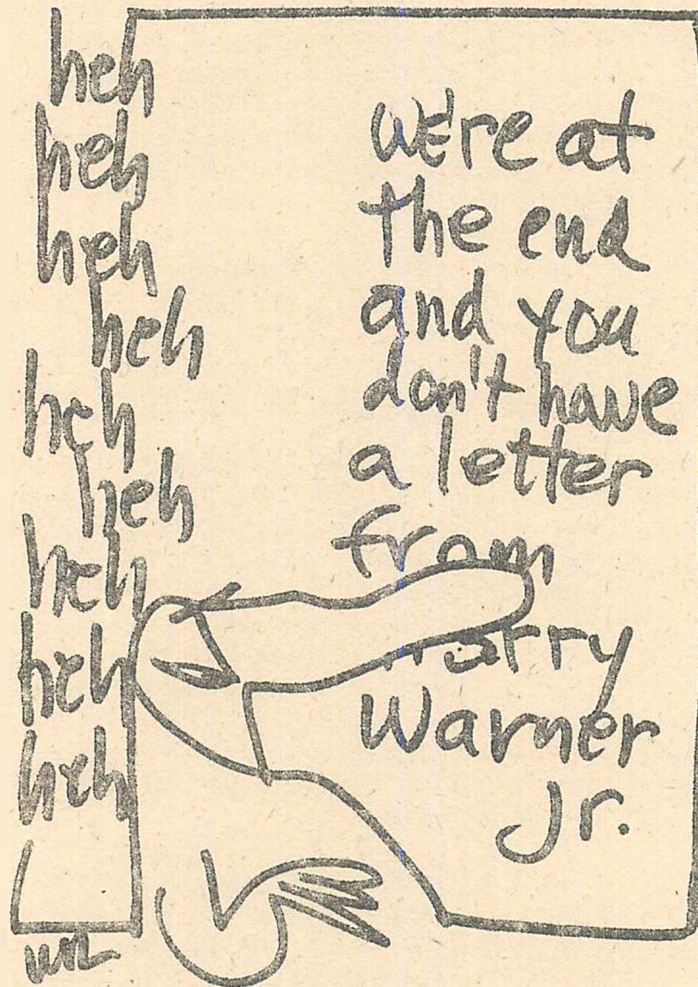 heh
heh
heh
heh
heh
heh
heh
heh
heh
we're at
the end
and you
don't have
a letter
from
Harry
Warner
Jr.